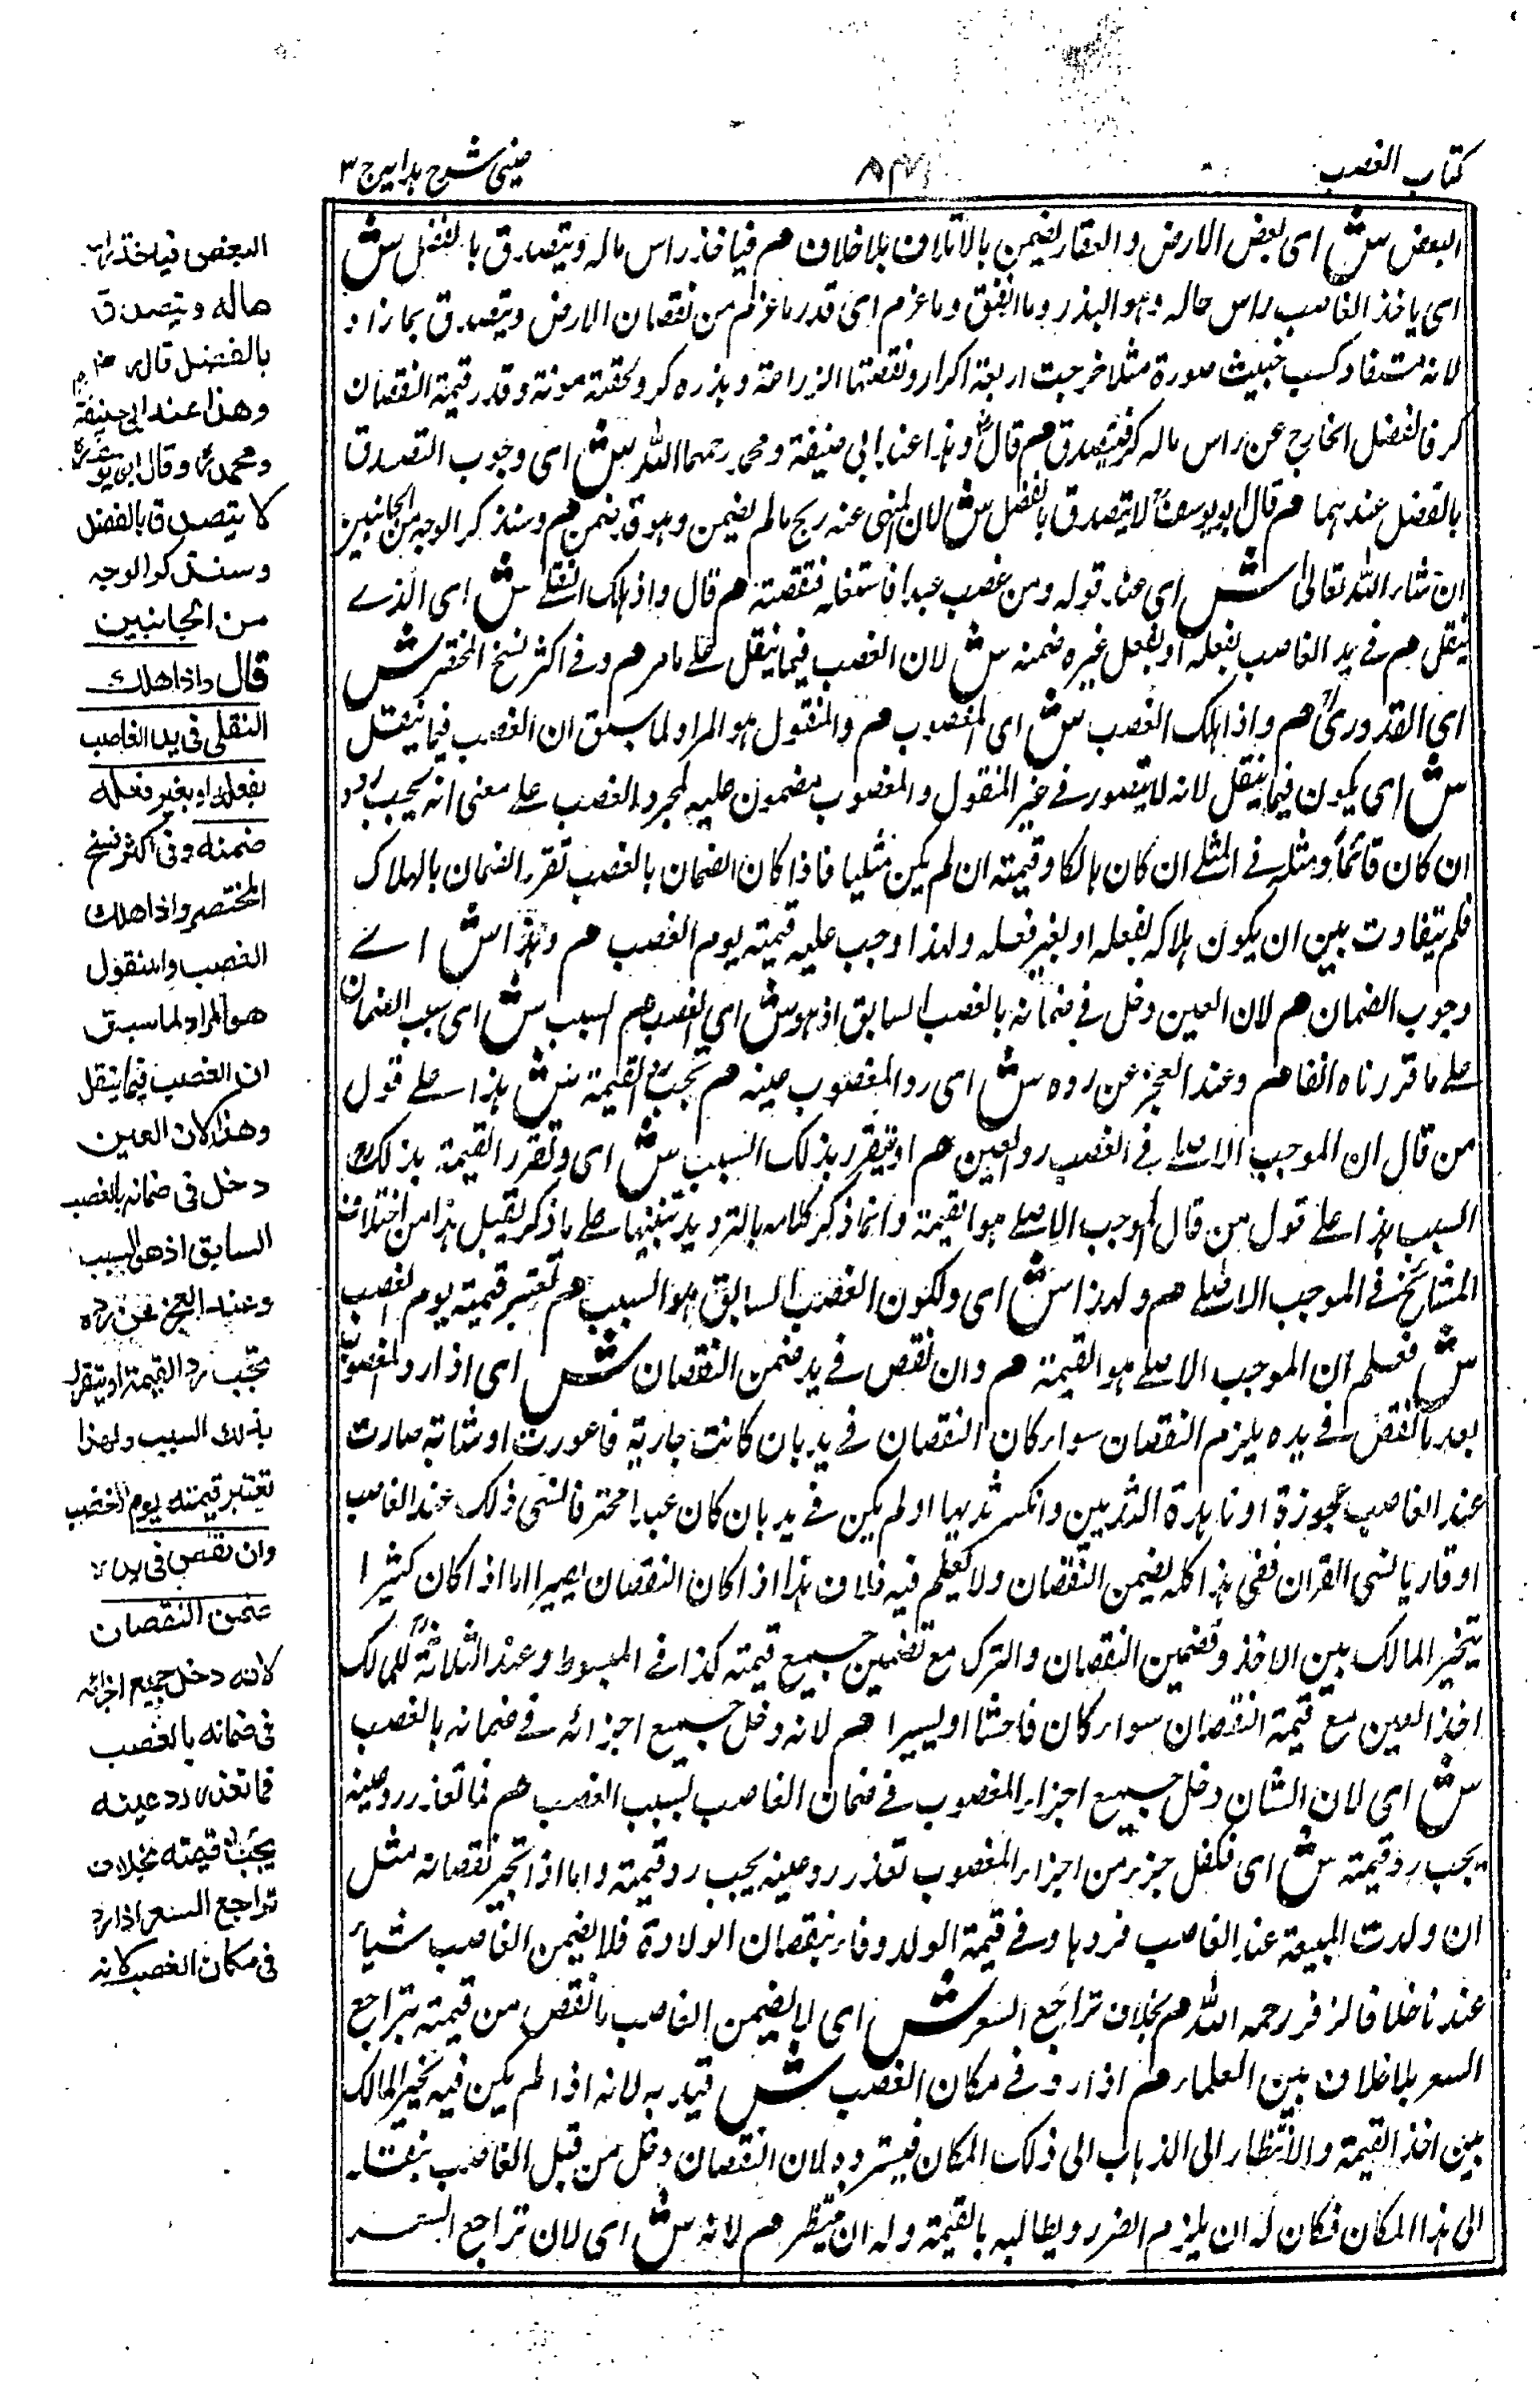 كتاب الغصب
عينى شرح هدايه ج ٣
البعض ش اى بعض الارض والعقار يضمن بالاتلاف بلا خلاف م فياخذ راس ماله ويتصدق بالفضل ش
اى ياخذ الغاصب راس ماله وهو البذر وما انفق وما غرم اى قدر ما غرم من نقصان الارض ويتصدق بما زاد
لانه مستفاد كسب خبيث صورة مثلا خرجت اربعة اكرار ونقصتها الزراعة وبذره كر ولحقته مونة وقدر قيمة النقصان
كر فالفضل الخارج عن راس ماله كر فيتصدق م قال وهذا عند ابى حنيفة ومحمد رحمهما الله ش اى وجوب التصدق
بالفضل عندهما م قال ابو يوسف لا يتصدق بالفضل ش لان المنهى عنه ربح مالم يضمن وهو قد ضمن م وسنذكر الوجه من الجانبين
ان شاء الله تعالى ش اى عند قوله ومن غصب عبدا فاستغله فنقصته م قال واذا هلك النقلى ش اى الذى
ينقل م فى يد الغاصب بفعله او بفعل غيره ضمنه ش لان الغصب فيما ينقل على ما مر م وفى اكثر نسخ المختصر ش
اى القدورى م واذا هلك الغصب ش اى المغصوب م والمنقول هو المراد لما سبق ان الغصب فيما ينقل
ش اى يكون فيما ينقل لانه لا يتصور فى غير المنقول والمغصوب مضمون عليه لمجرد الغصب على معنى انه يجب رده
ان كان قائما ومثله فى المثلى ان كان هالكا وقيمته ان لم يكن مثليا فاذا كان الضمان بالغصب تقرر الضمان بالهلاك
فلم يتفاوت بين ان يكون هلاكه بفعله او بغير فعله ولهذا وجب عليه قيمته يوم الغصب م وهذا ش اى
وجوب الضمان م لان العين دخل فى ضمانه بالغصب السابق اذ هو ش اى الغصب م السبب ش اى سبب الضمان
على ما قررناه انفا م وعند العجز عن رده ش اى رد المغصوب عينه م تجب رد القيمة ش هذا على قول
من قال ان الموجب الاصلى فى الغصب رد العين م او يتقرر بذلك السبب ش اى وتقرر القيمة بذلك
السبب هذا على قول من قال الموجب الاصلى هو القيمة وانما ذكر كلامه بالترديد تنبيها على ما ذكر لقبل هذا من اختلاف
المشائخ فى الموجب الاصلى م ولهذا ش اى ولكون الغصب السابق هو السبب م تعتبر قيمته يوم الغصب
ش فعلم ان الموجب الاصلى هو القيمة م وان نقص فى يده ضمن النقصان ش اى اذا رد المغصوب
بعد ما نقص فى يده يلزم النقصان سواء كان النقصان فى يد بان كانت جارية فاعورت او شابة صارت
عند الغاصب عجوزة او ناهدة الثديين وانكسر ثديها او لم يكن فى يد بان كان عبدا محترفا نسى ذلك عند الغاصب
او قاريا نسى القران ففى هذا كله يضمن النقصان ولا يعلم فيه خلاف هذا اذا كان النقصان يسيرا اما اذا كان كثيرا
يتخير المالك بين الاخذ وتضمين النقصان والترك مع تضمين جميع قيمته كذا فى المبسوط وعند الثلاثة للمالك
اخذ العين مع قيمة النقصان سواء كان فاحشا او يسيرا م لانه دخل جميع اجزائه فى ضمانه بالغصب
ش اى لان الشان دخل جميع اجزاء المغصوب فى ضمان الغاصب بسبب الغصب م فما تعذر رد عينه
يجب رد قيمته ش اى فكل جزء من اجزاء المغصوب تعذر رد عينه يجب رد قيمته واما اذا انجبر نقصانه مثل
ان ولدت المبيعة عند الغاصب فردها وفى قيمة الولد وفاء بنقصان الولادة فلا يضمن الغاصب شيأ
عندنا خلافا لزفر رحمه الله م بخلاف تراجع السعر ش اى لا يضمن الغاصب ما نقص من قيمته بتراجع
السعر بلا خلاف بين العلماء م اذا رد فى مكان الغصب ش قيد به لانه اذا لم يكن فيه يخير المالك
بين اخذ القيمة والانتظار الى الذهاب الى ذلك المكان فيسترده لان النقصان دخل من قبل الغاصب بنقله
الى هذا المكان فكان له ان يلزم الضرر ويطالبه بالقيمة وله ان ينتظر م لانه ش اى لان تراجع السعر
البعض فياخذ راس
ماله ويتصدق
بالفضل قال رضى
وهذا عند ابى حنيفة
ومحمد وقال ابو يوسف
لا يتصدق بالفضل
وسنذكر الوجه
من الجانبين
قال واذا هلك
النقلى فى يد الغاصب
بفعله او بغير فعله
ضمنه وفى اكثر نسخ
المختصر واذا هلك
الغصب والمنقول
هو المراد لما سبق
ان الغصب فيما ينقل
وهذا لان العين
دخل فى ضمانه بالغصب
السابق اذ هو السبب
وعند العجز عن رده
تجب رد القيمة او يتقرر
بذلك السبب ولهذا
تعتبر قيمته يوم الغصب
وان نقص فى يده
ضمن النقصان
لانه دخل جميع اجزائه
فى ضمانه بالغصب
فما تعذر رد عينه
يجب رد قيمته بخلاف
تراجع السعر اذا رد
فى مكان الغصب لانه